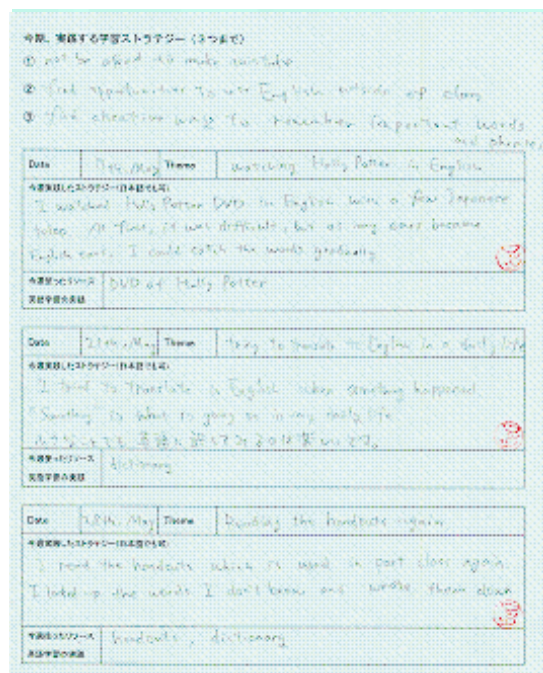 今期、実践する学習ストラテジー(3つまで)
① not be afraid to make mistake
② find opportunities to use English outside of class
③ find creative way to remember important words
and phrases
Date 7th, May Theme watching Holly Potter in English
今週実践したストラテジー(日本語でも可)
I watched Holly Potter DVD in English with a few Japanese
At first, it was difficult, but as my ears became
English ears, I could catch the words gradually.
今週使ったリソース DVD of Holly Potter
英語学習の実践
Date 21th, May Theme trying to translate to English in a daily life
今週実践したストラテジー(日本語でも可)
I tried to translate in English when something happened.
"Something" is what is going on in my daily life.
小さなことでも、英語に訳してみるのは楽しいです。
今週使ったリソース dictionary
英語学習の実践
Date 28th, May Theme Reading the handouts again
今週実践したストラテジー(日本語でも可)
I read the handouts which is used in past class again.
I looked up the words I don't know and wrote them down
今週使ったリソース handouts, dictionary
英語学習の実践